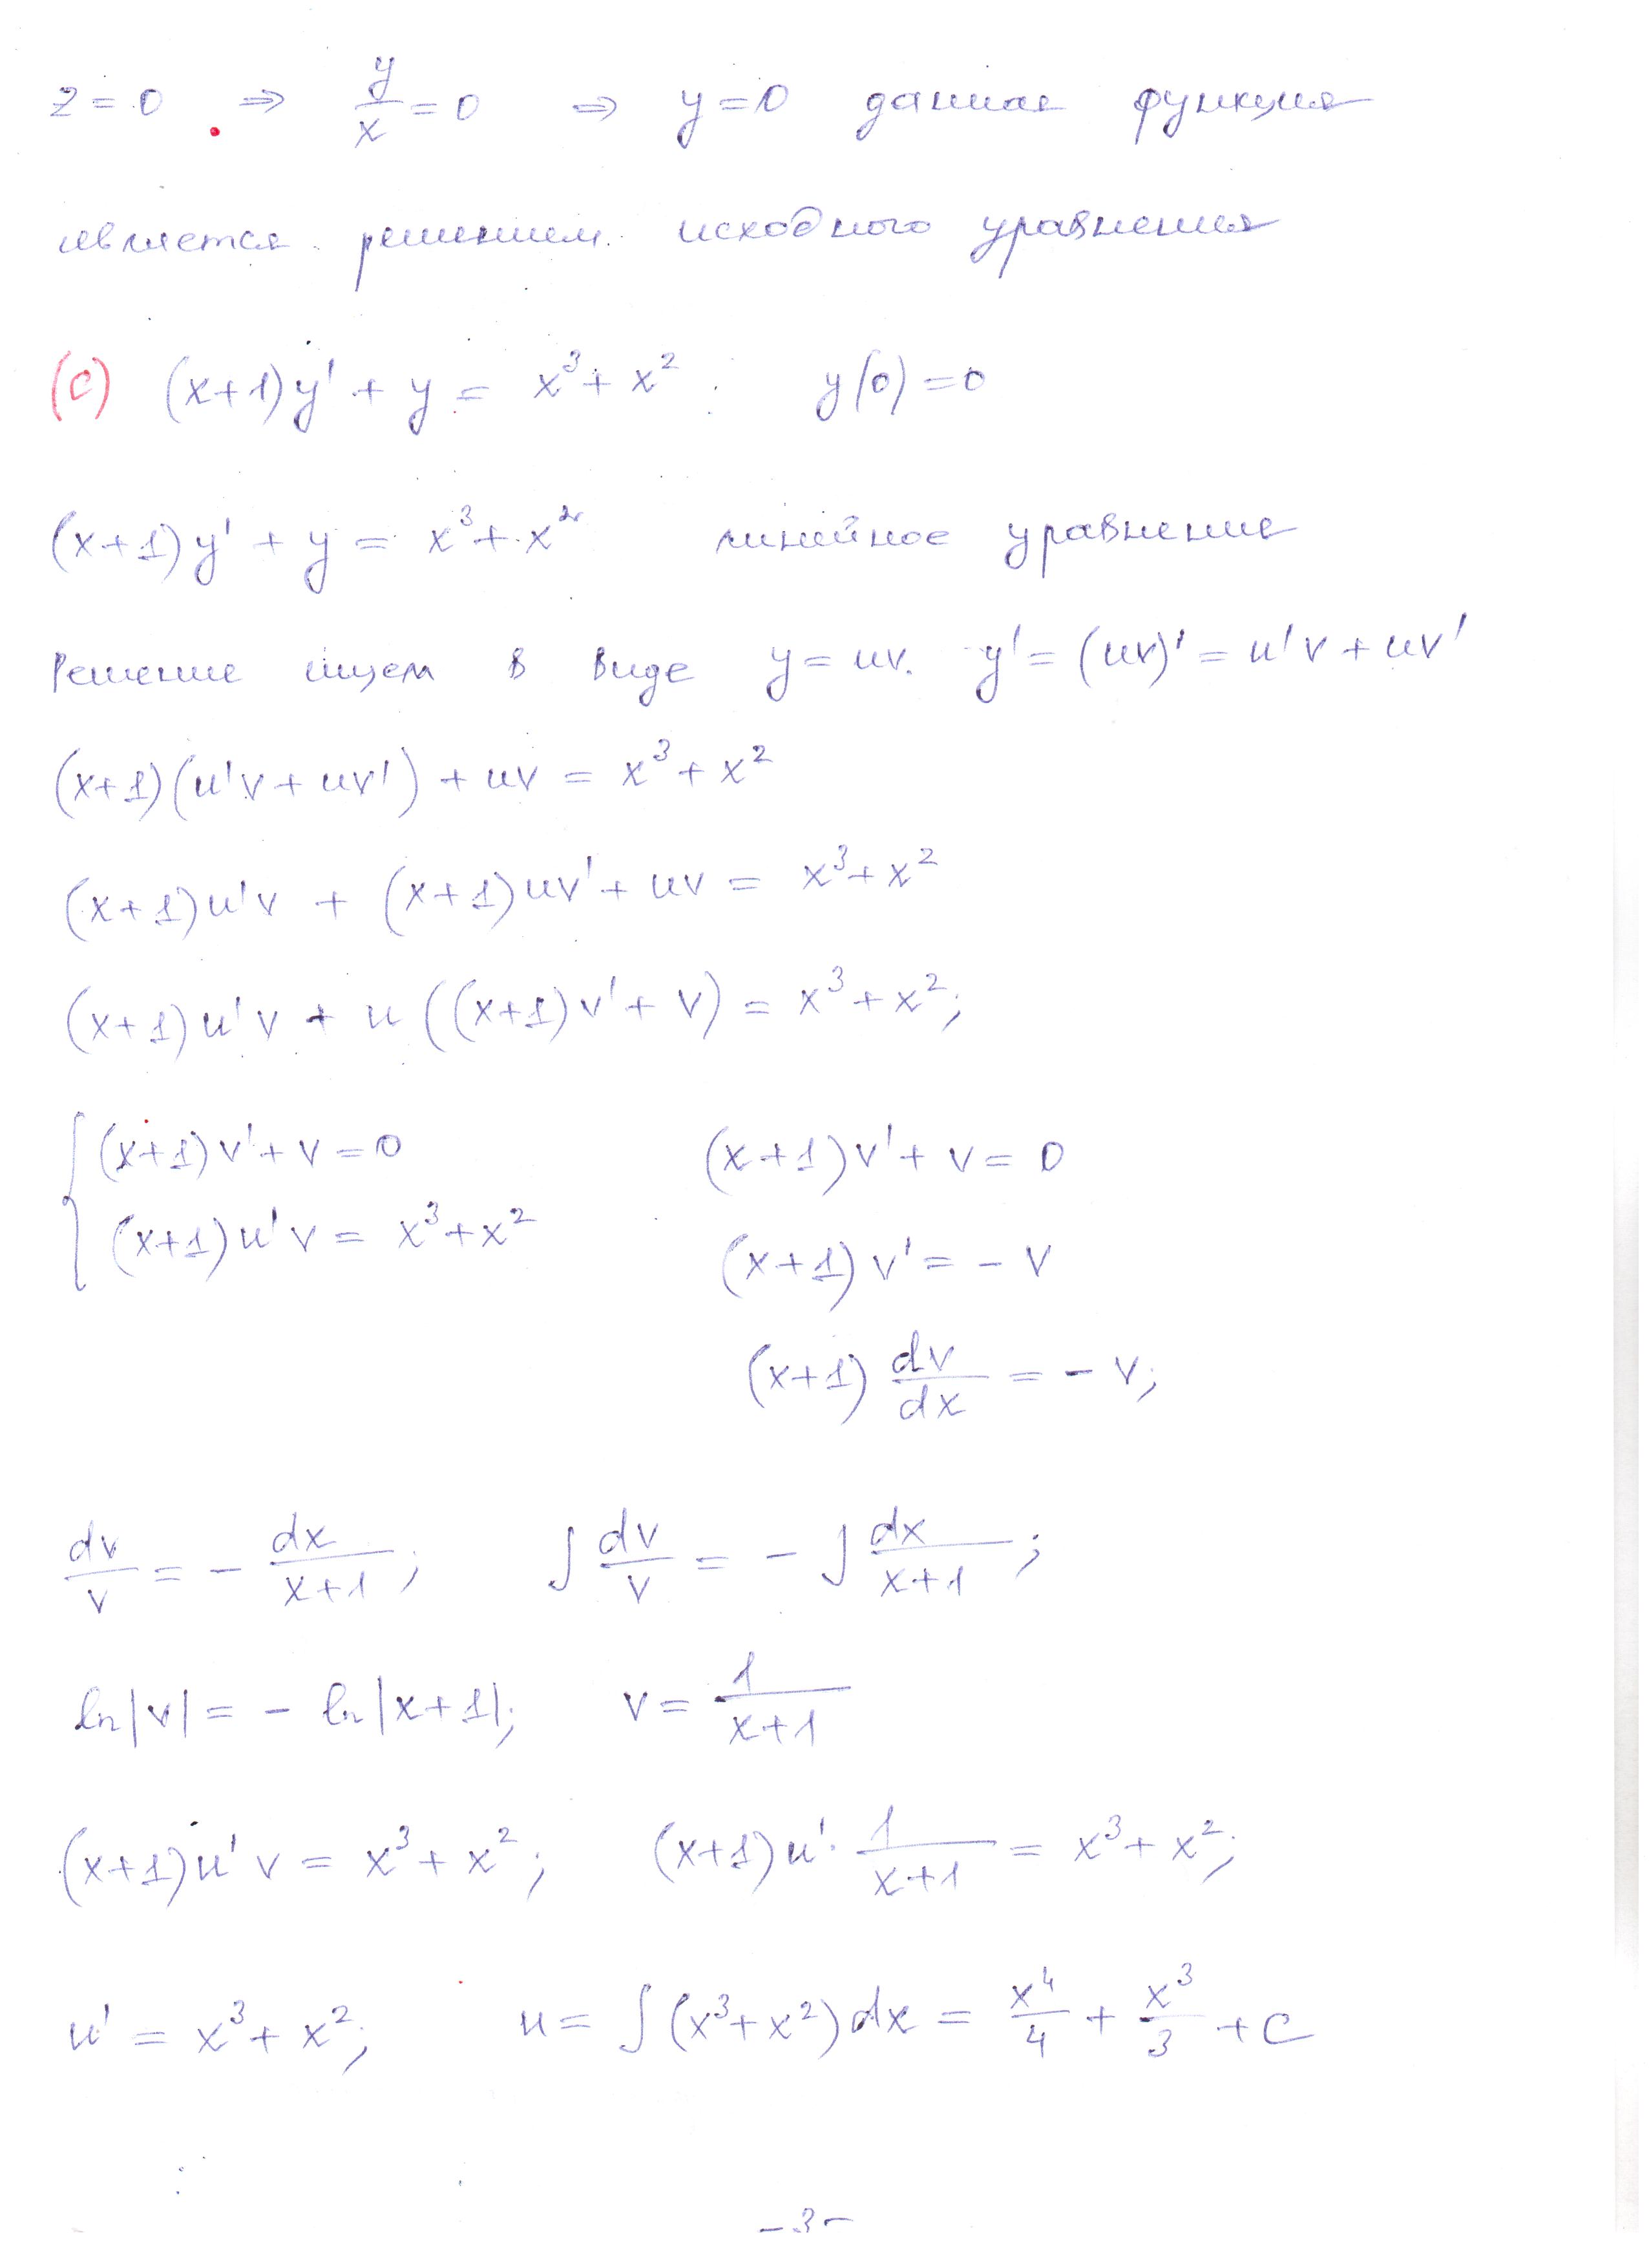 z = 0 ⇒ y/x = 0 ⇒ y = 0 данная функция
является решением исходного уравнения
(c) (x+1)y' + y = x³ + x² y(0) = 0
(x+1)y' + y = x³ + x² линейное уравнение
Решение ищем в виде y = uv. y' = (uv)' = u'v + uv'
(x+1)(u'v + uv') + uv = x³ + x²
(x+1)u'v + (x+1)uv' + uv = x³ + x²
(x+1)u'v + u((x+1)v' + v) = x³ + x²;
{ (x+1)v' + v = 0 (x+1)v' + v = 0
(x+1)u'v = x³ + x² (x+1)v' = - v
(x+1) dv/dx = - v;
dv/v = - dx/(x+1); ∫ dv/v = - ∫ dx/(x+1);
ln|v| = - ln|x+1|; v = 1/(x+1)
(x+1)u'v = x³ + x²; (x+1)u' · 1/(x+1) = x³ + x²;
u' = x³ + x²; u = ∫(x³ + x²)dx = x⁴/4 + x³/3 + C
- 3 -